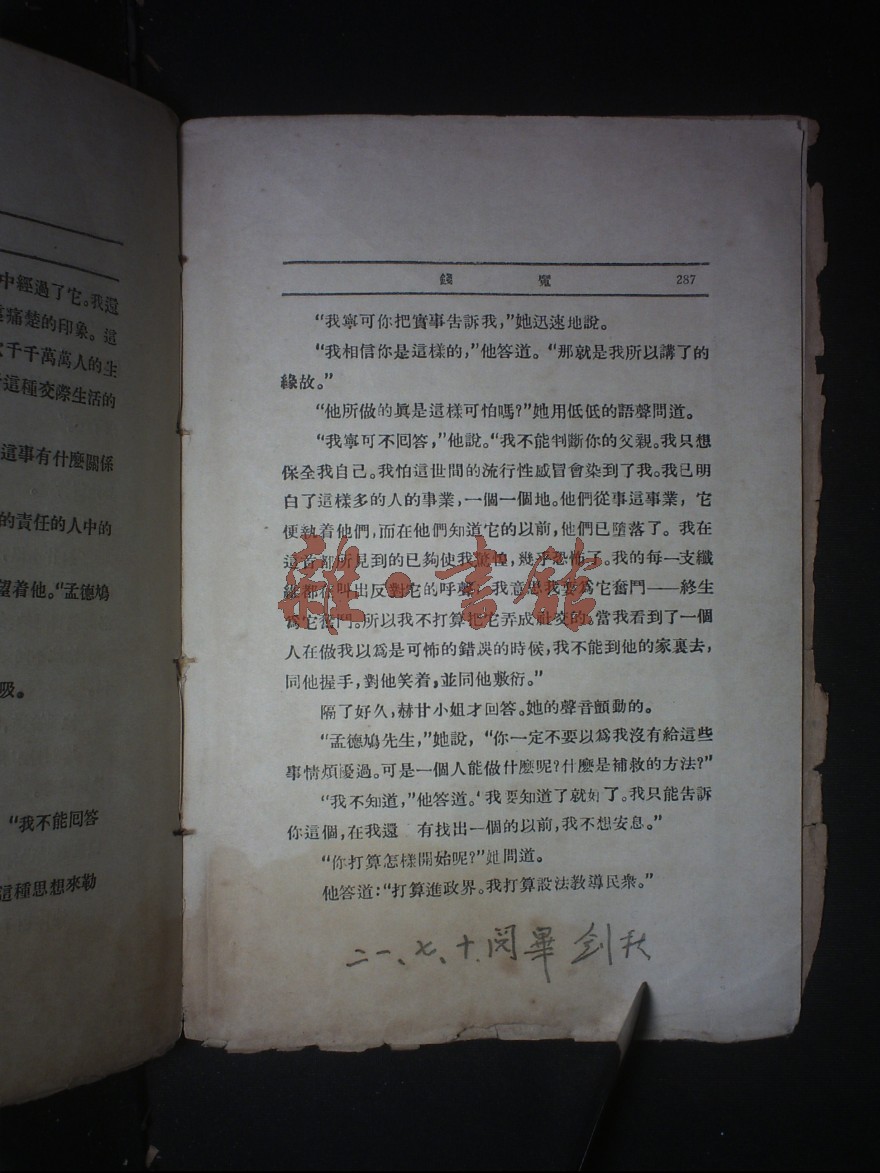 中經過了它。我還
痛楚的印象。這
千千萬萬人的生
這種交際生活的
這事有什麼關係
的責任的人中的
望着他。“孟德鳩
吸。
“我不能回答
這種思想來勒
錢魔 287
“我寧可你把實事告訴我,”她迅速地說。
“我相信你是這樣的,”他答道。“那就是我所以講了的
緣故。”
“他所做的眞是這樣可怕嗎?”她用低低的語聲問道。
“我寧可不回答,”他說。“我不能判斷你的父親。我只想
保全我自己。我怕這世間的流行性感冒會染到了我。我已明
白了這樣多的人的事業,一個一個地。他們從事這事業,它
便執着他們,而在他們知道它的以前,他們已墮落了。我在
這首都所見到的已夠使我驚惶,幾乎恐怖了。我的每一支纖
維都在叫出反對它的呼聲;我意思我要爲它奮鬥——終生
爲它奮鬥。所以我不打算把它弄成社交的。當我看到了一個
人在做我以爲是可怖的錯誤的時候,我不能到他的家裏去,
同他握手,對他笑着,並同他敷衍。”
隔了好久,赫甘小姐才回答。她的聲音顫動的。
“孟德鳩先生,”她說,“你一定不要以爲我沒有給這些
事情煩憂過。可是一個人能做什麼呢?什麼是補救的方法?”
“我不知道,”他答道。‘我要知道了就好了。我只能告訴
你這個,在我還 有找出一個的以前,我不想安息。”
“你打算怎樣開始呢?”她問道。
他答道:“打算進政界。我打算設法敎導民衆。”
二一、七、十、閱畢 劍秋
雜·書館